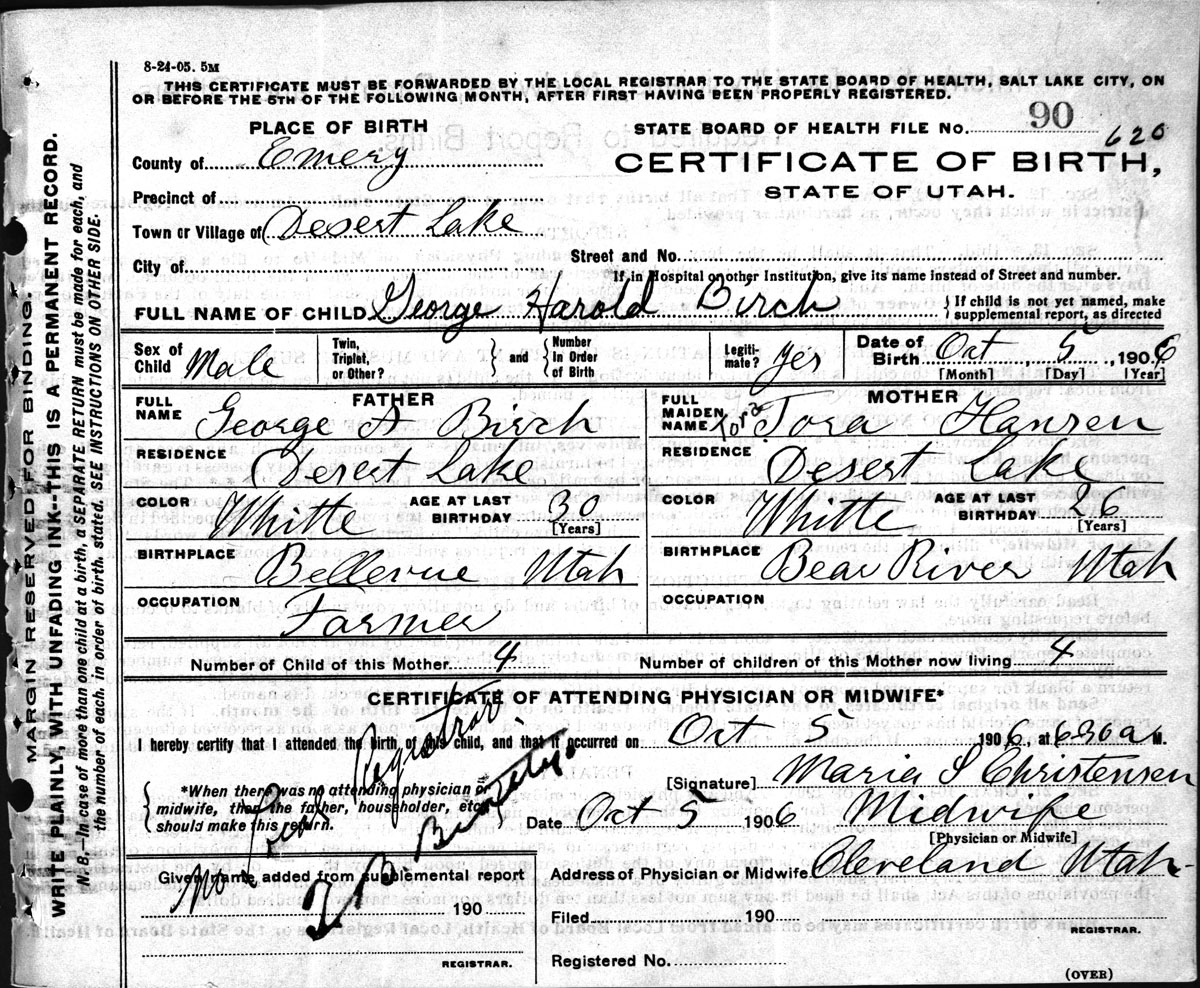 8-24-05. 5M
THIS CERTIFICATE MUST BE FORWARDED BY THE LOCAL REGISTRAR TO THE STATE BOARD OF HEALTH, SALT LAKE CITY, ON
OR BEFORE THE 5TH OF THE FOLLOWING MONTH, AFTER FIRST HAVING BEEN PROPERLY REGISTERED.
PLACE OF BIRTH
STATE BOARD OF HEALTH FILE No. 90 620
County of Emery
CERTIFICATE OF BIRTH,
STATE OF UTAH.
Precinct of
Town or Village of Desert Lake
City of Street and No.
If in Hospital or other Institution, give its name instead of Street and number.
FULL NAME OF CHILD George Harold Birch { If child is not yet named, make supplemental report, as directed
Sex of Child Male Twin, Triplet, or Other? } and { Number In Order of Birth Legiti-mate? yes Date of Birth Oct 5, 1906
[Month] [Day] [Year]
FATHER MOTHER
FULL NAME George A Birch FULL MAIDEN NAME Tora Hansen
RESIDENCE Desert Lake RESIDENCE Desert Lake
COLOR Whitte AGE AT LAST BIRTHDAY 30 [Years] COLOR Whitte AGE AT LAST BIRTHDAY 26 [Years]
BIRTHPLACE Bellevue Utah BIRTHPLACE Bear River Utah
OCCUPATION Farmer OCCUPATION
Number of Child of this Mother 4 Number of children of this Mother now living 4
CERTIFICATE OF ATTENDING PHYSICIAN OR MIDWIFE*
I hereby certify that I attended the birth of this child, and that it occurred on Oct 5 1906, at 6 30 a M.
{ *When there was no attending physician or midwife, then the father, householder, etc., should make this return. }
[Signature] Maria S Christensen
Date Oct 5 1906 Midwife
[Physician or Midwife]
Address of Physician or Midwife Cleveland Utah
Given name added from supplemental report
190
Filed 190
REGISTRAR.
Registered No.
REGISTRAR.
(OVER)
Registrar
MARGIN RESERVED FOR BINDING
WRITE PLAINLY, WITH UNFADING INK--THIS IS A PERMANENT RECORD.
N. B.—In case of more than one child at a birth, a SEPARATE RETURN must be made for each, and
the number of each, in order of birth, stated. SEE INSTRUCTIONS ON OTHER SIDE.